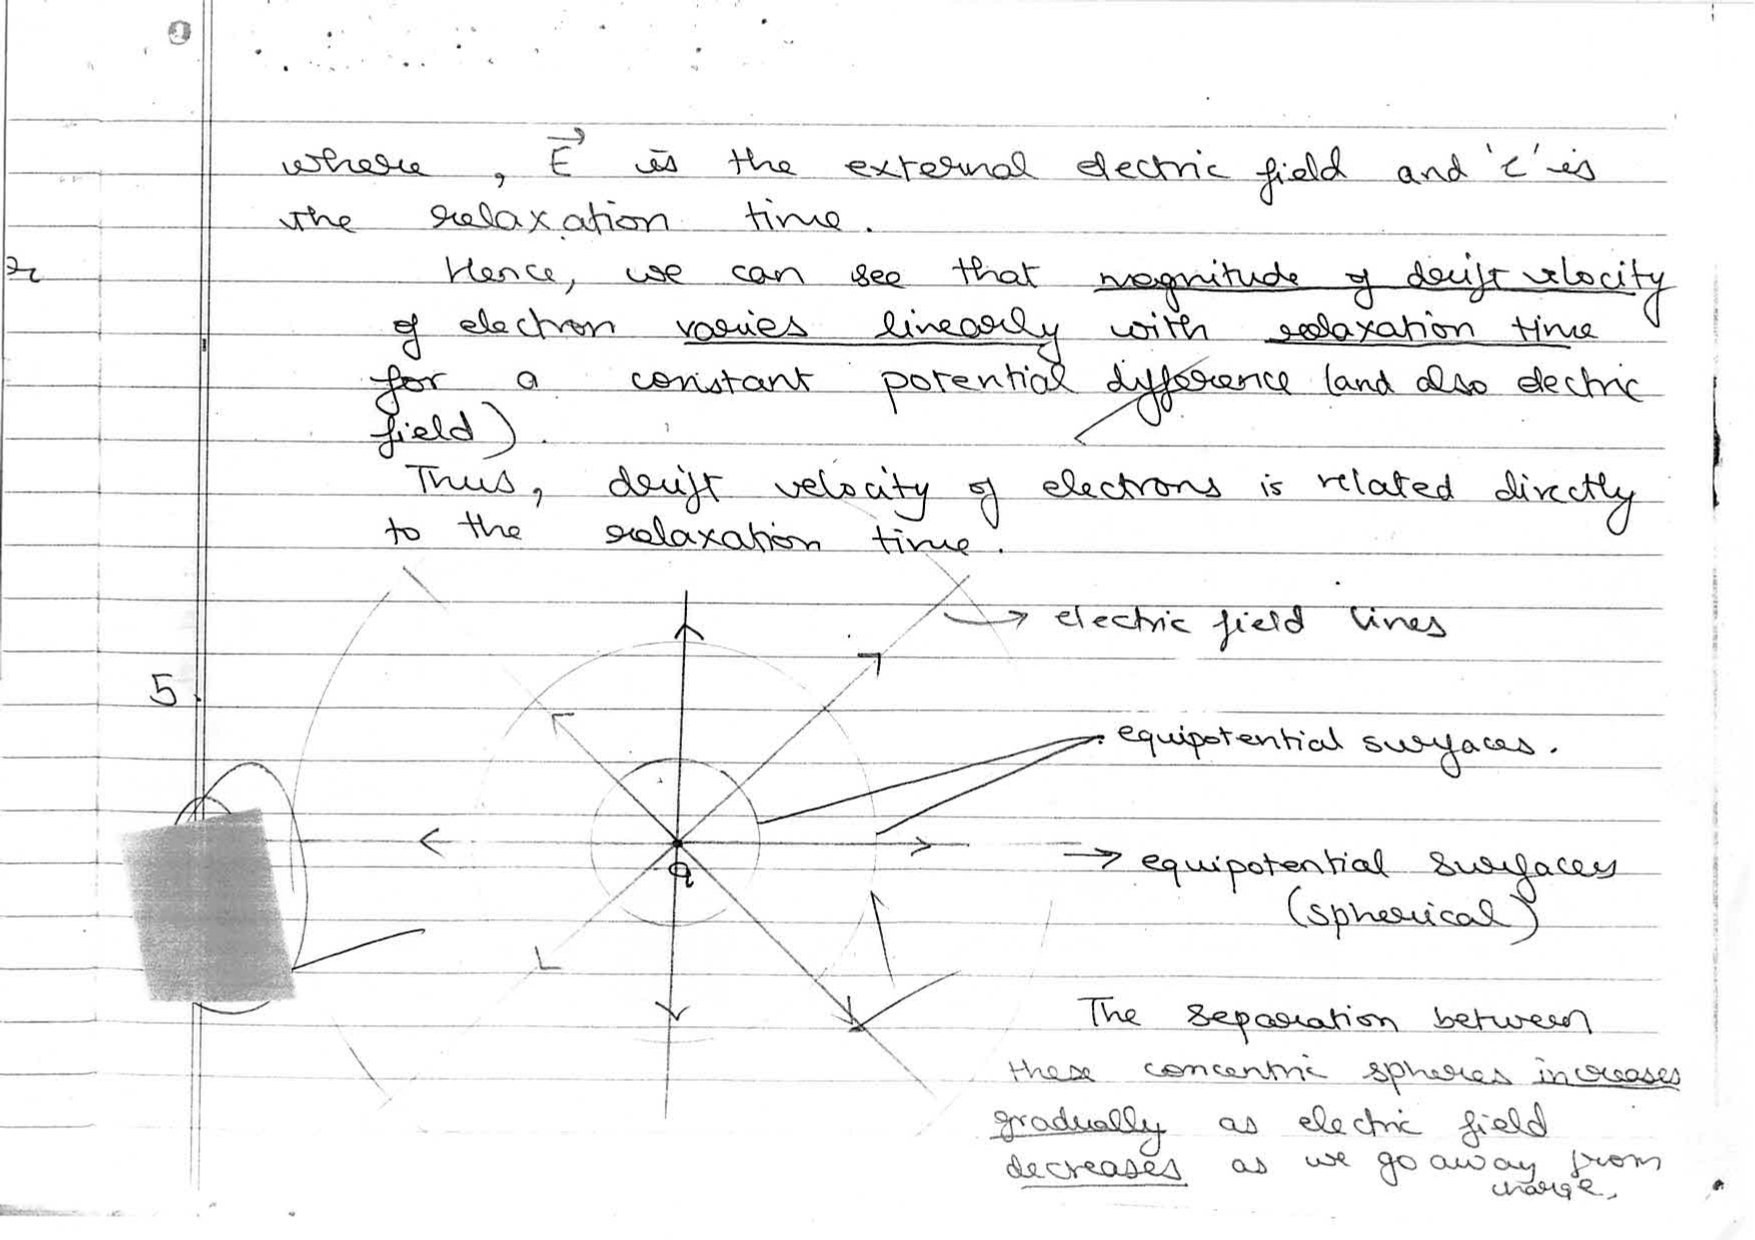 where, E⃗ is the external electric field and 'τ' is
the relaxation time.
Hence, we can see that magnitude of drift velocity
of electron varies linearly with relaxation time
for a constant potential difference (and also electric
field).
Thus, drift velocity of electrons is related directly
to the relaxation time.
→ electric field lines
5.
equipotential surfaces.
Q
→ equipotential surfaces
(spherical)
The separation between
these concentric spheres increases
gradually as electric field
decreases as we go away from
charge.